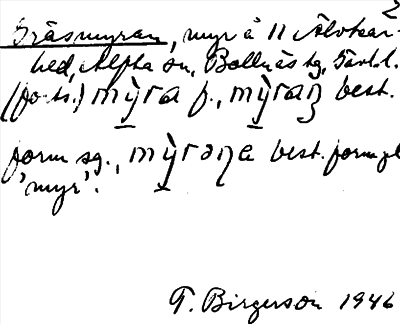 2
Gräsmyran, myr å N Älvkar-
hed, Alfta sn, Bollnäs tg, Gävl.l.
(fo ts.) mỳra f., mỳraṇ best.
form sg., mỳrəṇa best. form pl
'myr'.
T. Birgerson 1946